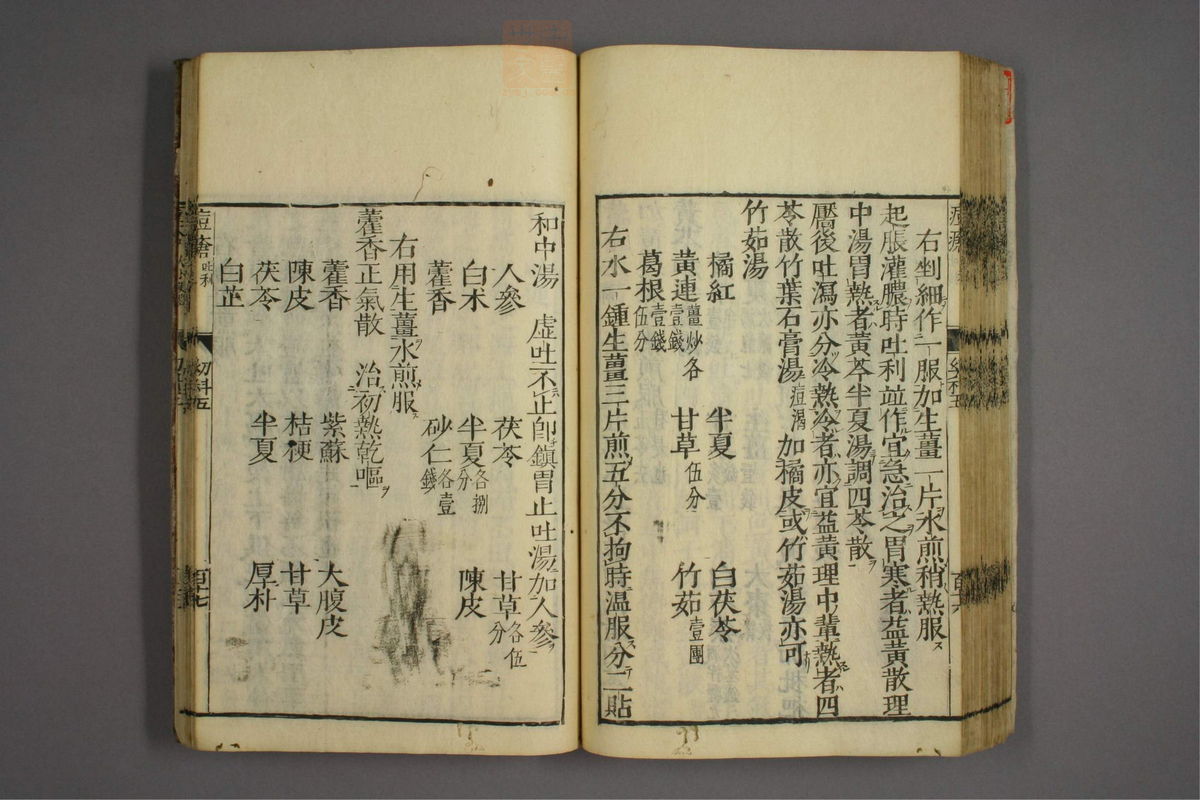 右剉細作一服加生薑一片水煎稍熱服
起脹灌膿時吐利並作宜急治之胃寒者益黃散理
中湯胃熱者黃芩半夏湯調四苓散
靨後吐瀉亦分冷熱冷者亦宜益黃理中輩熱者四
苓散竹葉石膏湯痘渴加橘皮或竹茹湯亦可
竹茹湯
橘紅 半夏 白茯苓
黃連薑炒各壹錢 甘草伍分 竹茹壹團
葛根壹錢伍分
右水一鍾生薑三片煎五分不拘時溫服分二貼
和中湯 虛吐不止即鎮胃止吐湯加人參
人參 茯苓 甘草各伍分
白朮 半夏各捌分 陳皮
藿香 砂仁各壹錢
右用生薑水煎服
藿香正氣散 治初熱乾嘔
藿香 紫蘇 大腹皮
陳皮 桔梗 甘草
茯苓 半夏 厚朴
白芷
痘瘡 吐利 幼科五 百十七